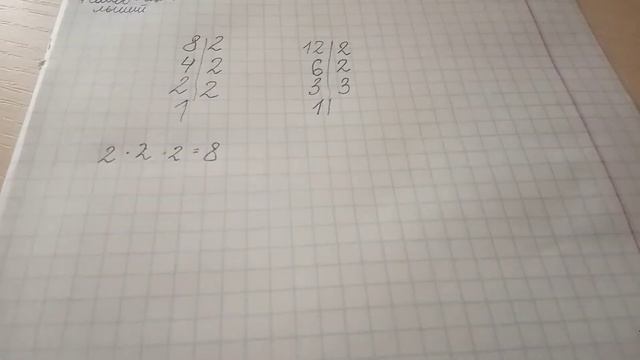 8 | 2 12 | 2
4 | 2 6 | 2
2 | 2 3 | 3
1 1 |
2 · 2 · 2 = 8